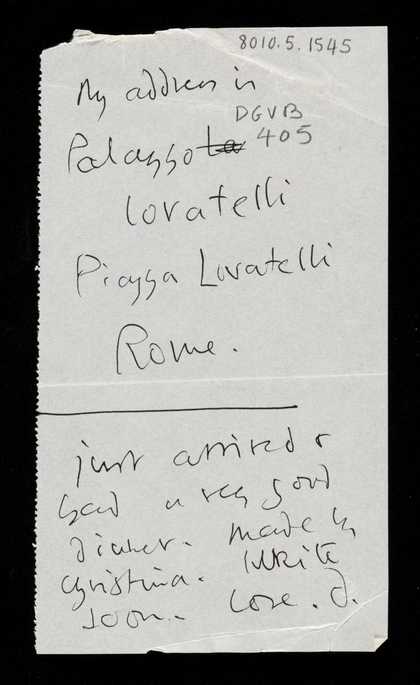 8010.5.1545
My address is
DGVB
405
Palazzo La
Lovatelli
Piazza Lovatelli
Rome.
just arrived &
had a very good
dinner. made by
christina. Write
soon. Love. J.